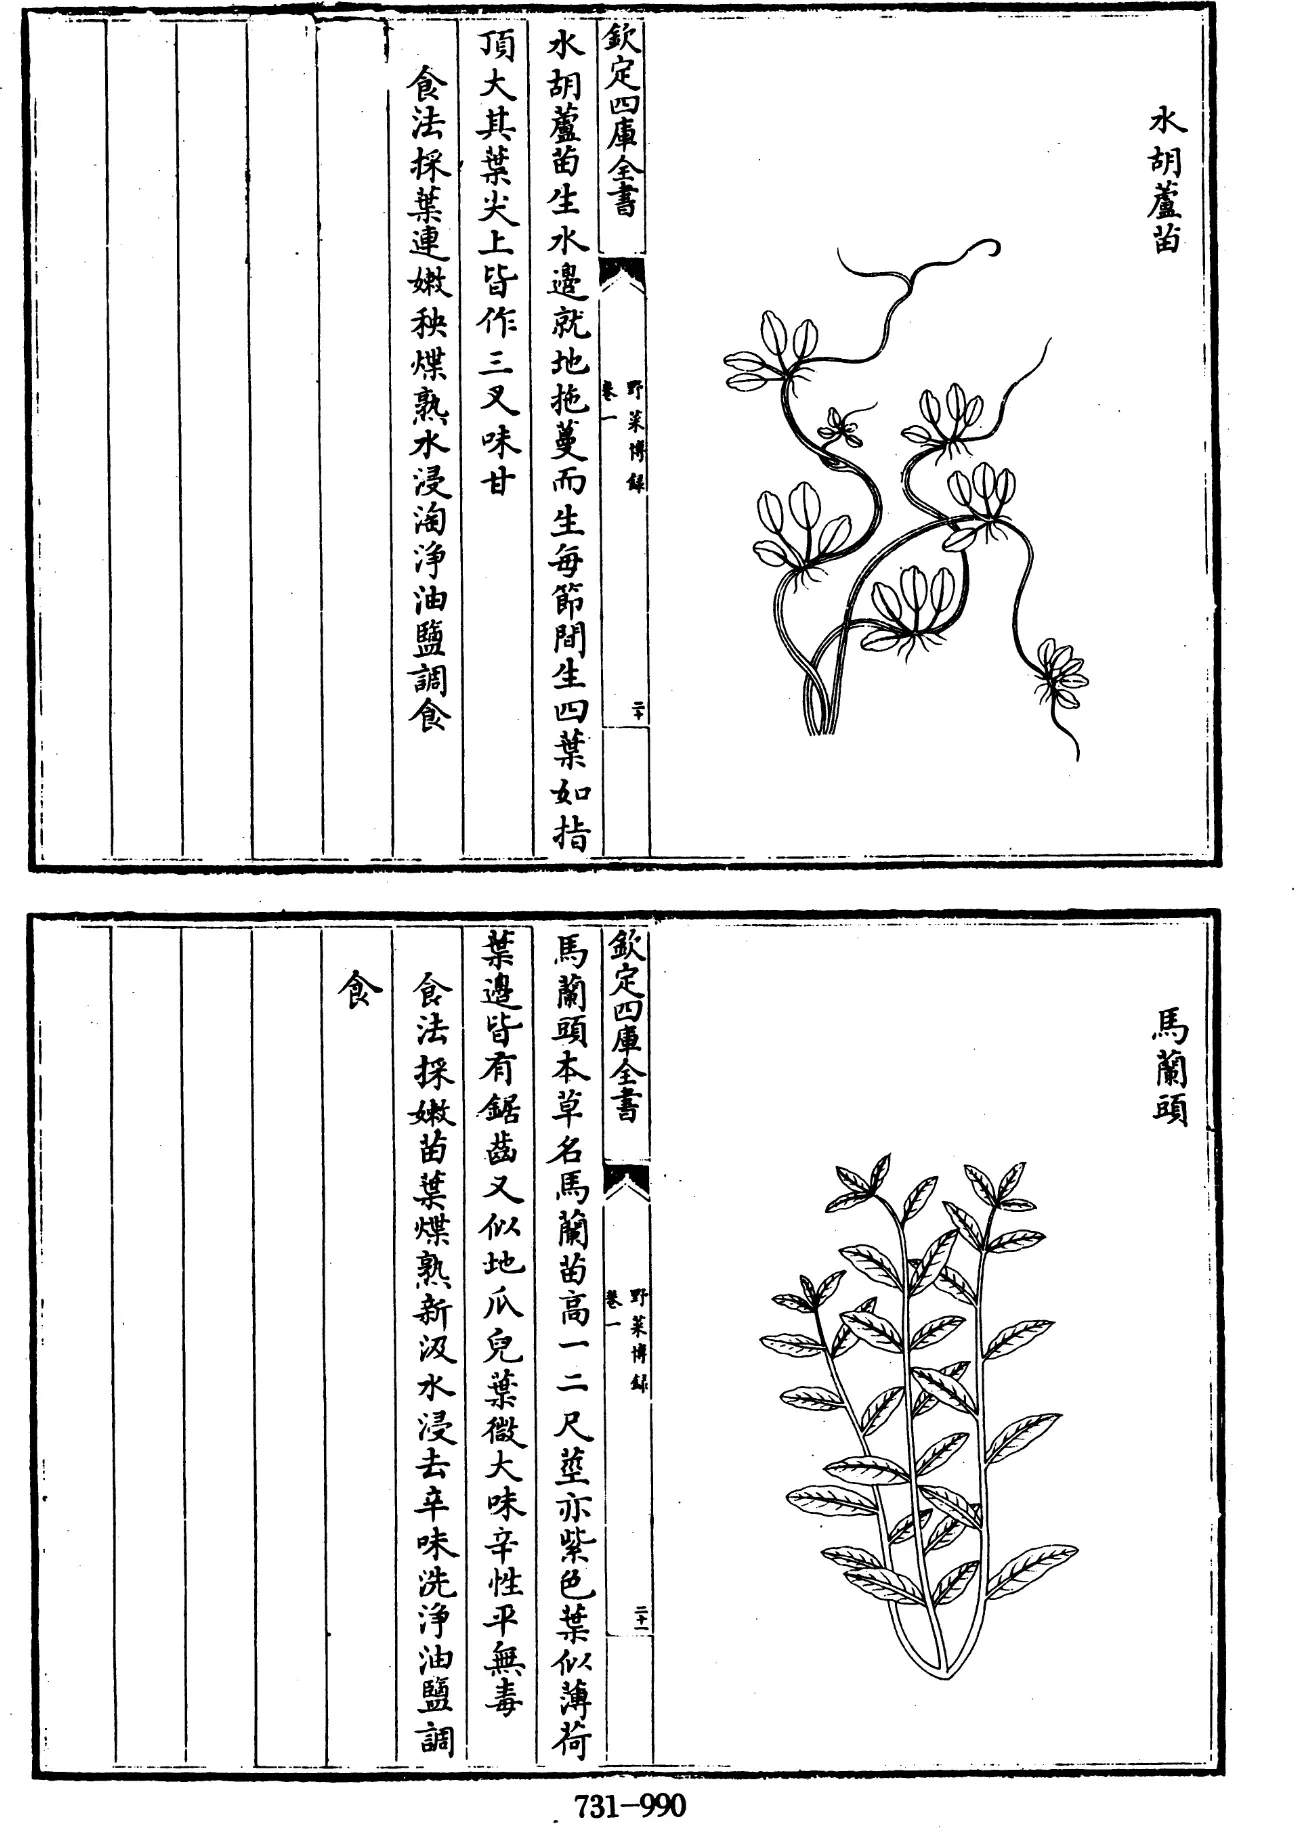 水胡蘆苗
欽定四庫全書
野菜博録
卷一
二十
水胡蘆苗生水邊就地拖蔓而生每節間生四葉如指
頂大其葉尖上皆作三叉味甘
食法採葉連嫩秧煠熟水浸淘淨油鹽調食
馬蘭頭
欽定四庫全書
野菜博録
卷一
二十一
馬蘭頭本草名馬蘭苗高一二尺莖亦紫色葉似薄荷
葉邊皆有鋸齒又似地瓜兒葉微大味辛性平無毒
食法採嫩苗葉煠熟新汲水浸去辛味洗淨油鹽調
食
731-990